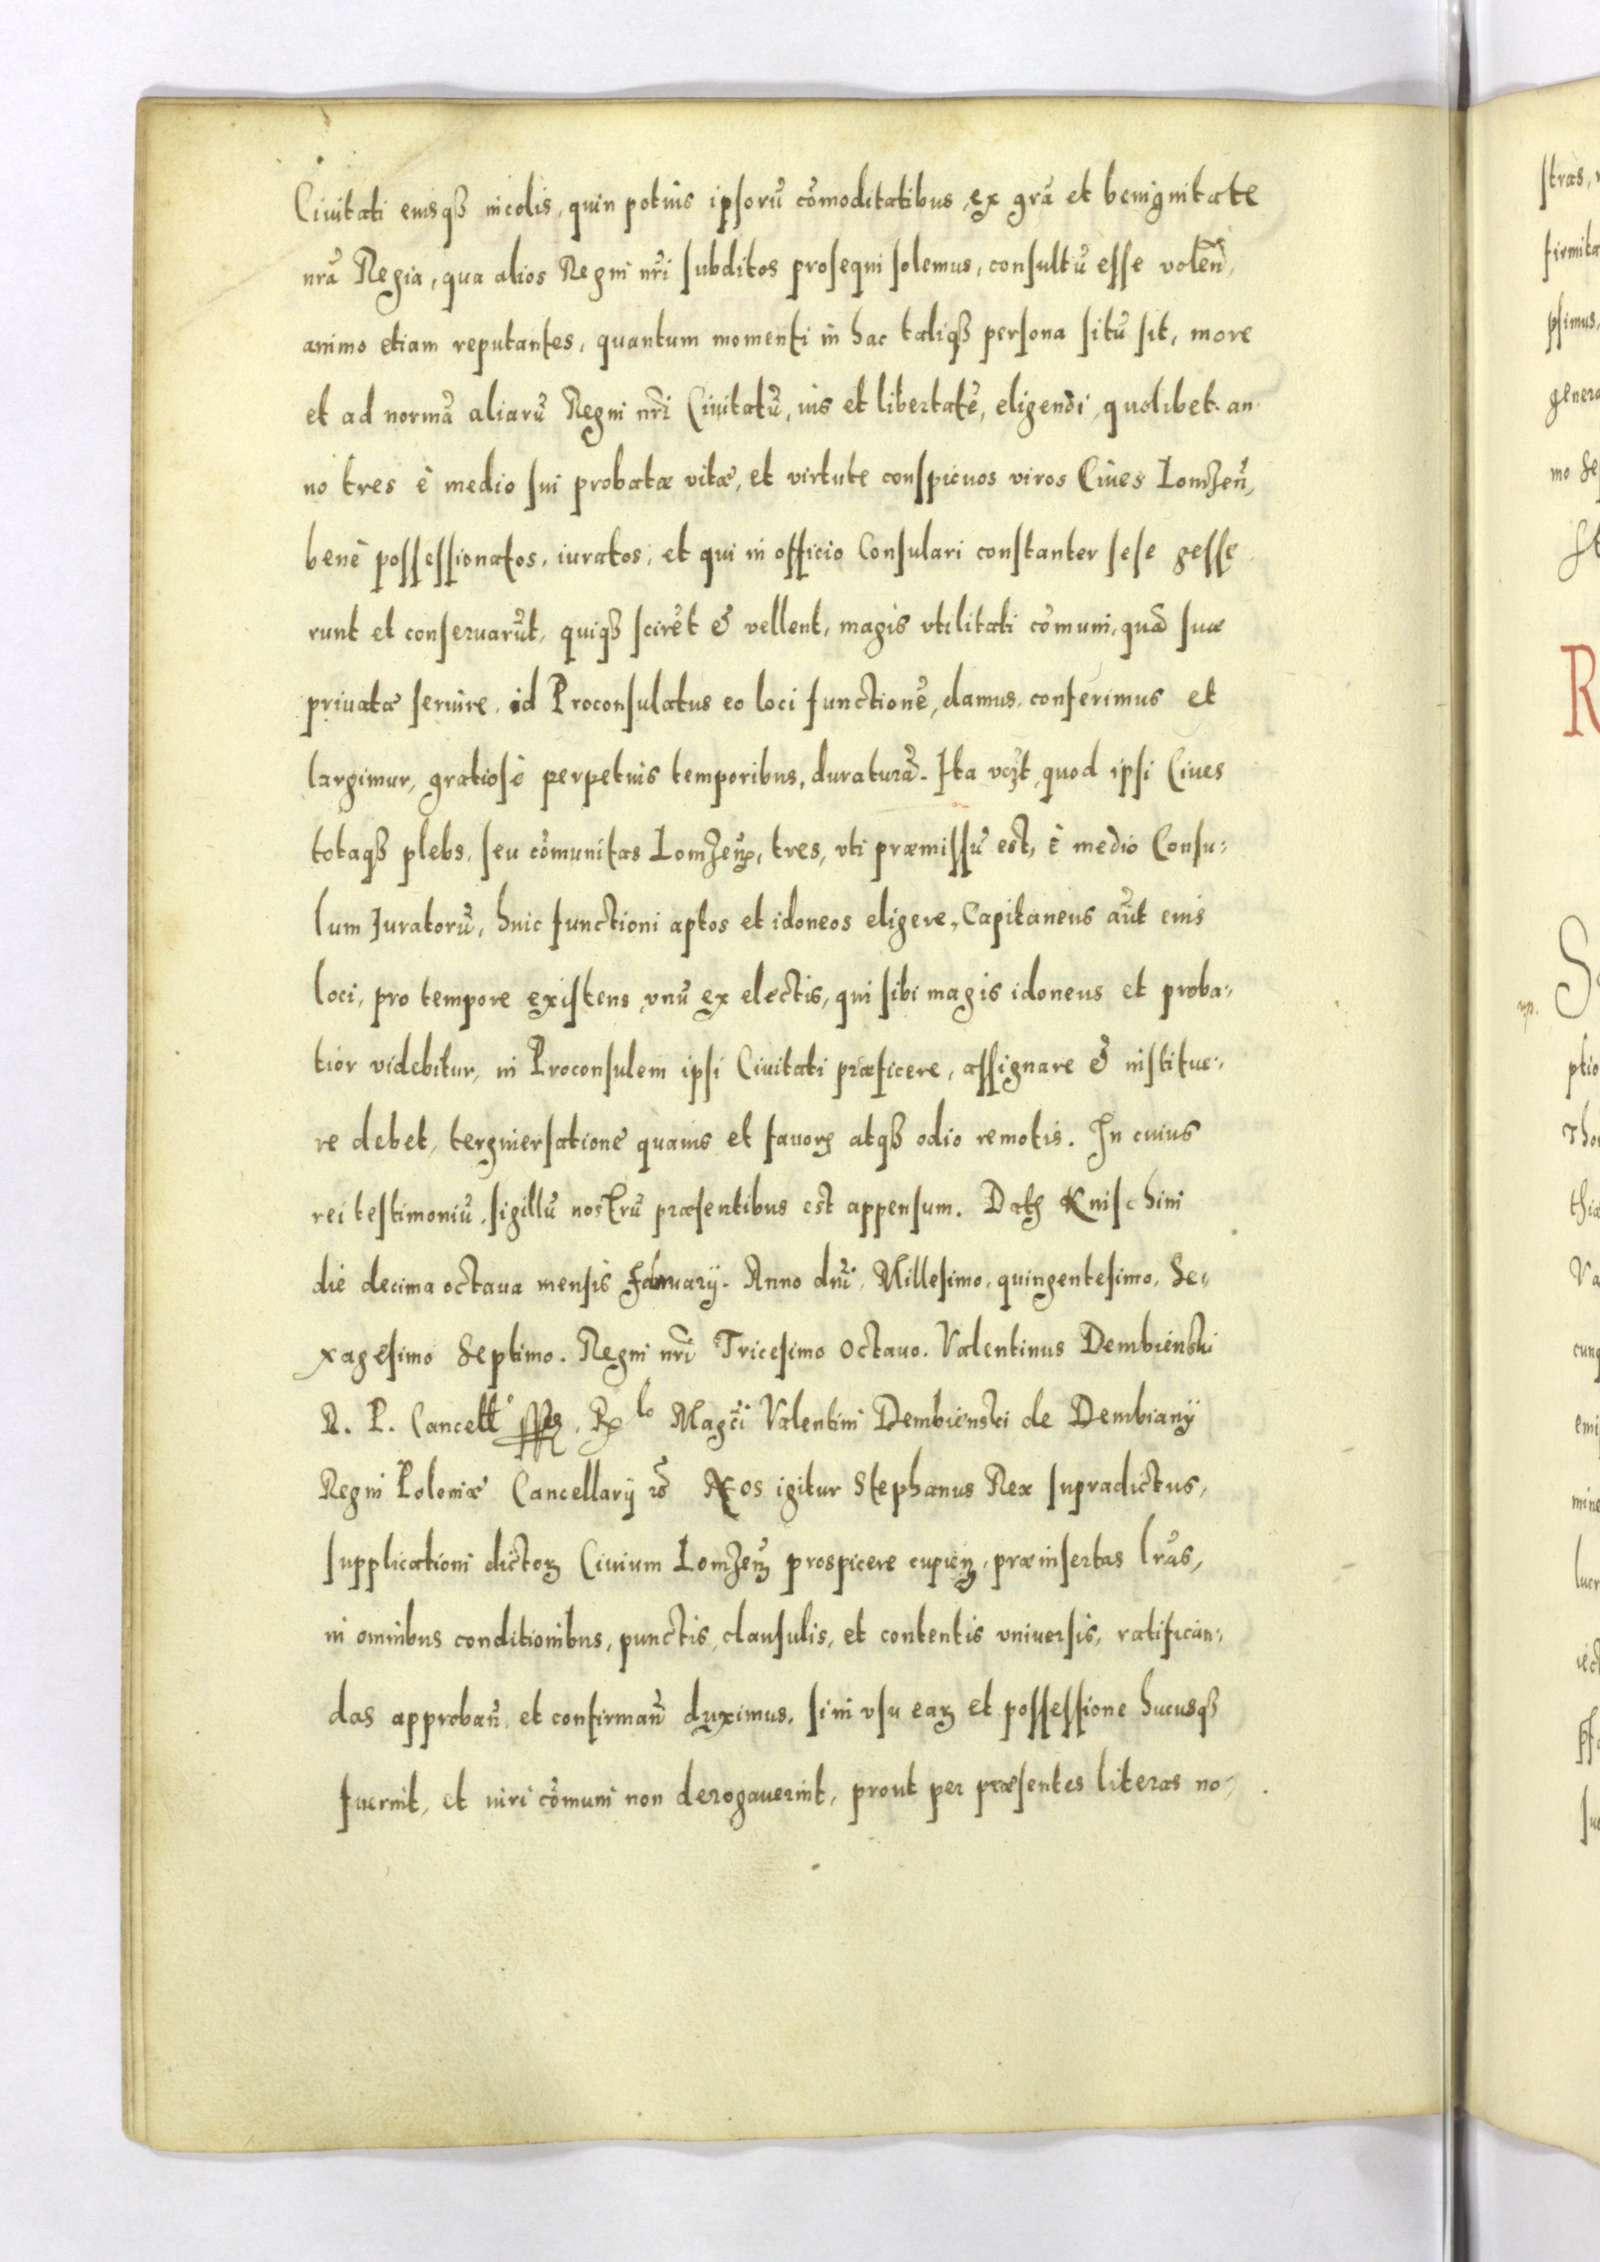 Civitati eiusqȝ incolis, quin potius ipsorū cōmoditatibus, ex grā et benignitate
nrā Regia, qua alios Regni nr̄i subditos prosequi solemus, consultū esse volen̄,
animo etiam reputantes, quantum momenti in hac taliqȝ persona sitū sit, more
et ad normā aliarū Regni nr̄i Civitatū, ius et libertatē, eligendi quolibet an-
no tres è medio sui probatæ vitæ, et virtute conspicuos viros Cives Lomzen̄,
benè possessionatos, iuratos, et qui in officio Consulari constanter sese gesse
runt et conseruarūt, quiqȝ scirēt & vellent, magis vtilitati cōmuni, quā suæ
priuatæ seruire, id Proconsulatus eo loci functionē, damus, conferimus et
largimur, gratiosè perpetuis temporibus, duraturā. Ita vt quod ipsi Ciues
totaqȝ plebs, seu cōmunitas Lomzen̄, tres, vti præmissū est, è medio Consu-
lum Iuratorū, huic functioni aptos et idoneos eligere, Capitaneus aūt eius
loci, pro tempore existens vnū ex electis, qui sibi magis idoneus et proba-
tior videbitur, in Proconsulem ipsi Civitati præficere, assignare & institue-
re debet, tergiuersatione quauis et fauore atqȝ odio remotis. In cuius
rei testimoniū, sigillū nostrū præsentibus est appensum. Datꝫ Knischini
die decima octava mensis February. Anno dn̄i, Millesimo, quingentesimo, Se-
xagesimo Septimo. Regni nr̄i Tricesimo Octauo. Valentinus Dembienski
R. P. Cancell Mag̅ci Valentini Dembienski de Dembiany
Regni Poloniæ Cancellarij Nos igitur Stephanus Rex supradictus,
supplicationi dictoꝝ Civium Lomzen̄ prospicere cupien̄, præinsertas lr̄as,
in omnibus conditionibus, punctis, clausulis, et contentis vniuersis, ratifican-
das approban̄, et confirman̄ duximus, si in vsu eaꝝ et possessione hucusqȝ
fuerint, et iuri cōmuni non derogauerint, prout per præsentes literas no-
stras,
firmita
psimus,
genera
R